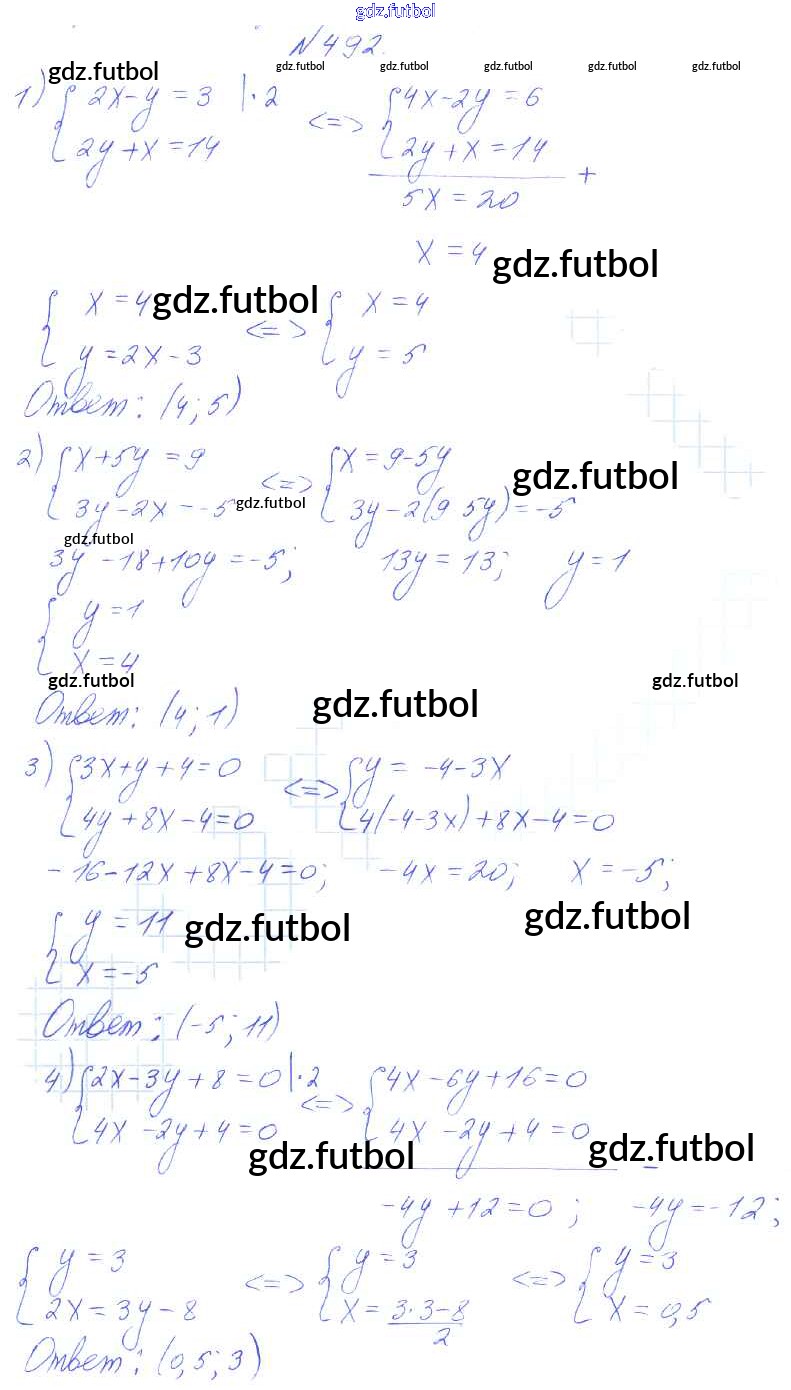 gdz.futbol
N 492.
gdz.futbol gdz.futbol gdz.futbol gdz.futbol gdz.futbol gdz.futbol
1) { 2x-y = 3 |·2 <=> { 4x-2y = 6
2y+x = 14 2y+x = 14 +
5x = 20
x = 4 gdz.futbol
{ x = 4 gdz.futbol <=> { x = 4
y = 2x-3 y = 5
Ответ: (4; 5)
2) { x+5y = 9 <=> { x = 9-5y gdz.futbol
3y-2x = -5 gdz.futbol 3y-2(9 5y) = -5
gdz.futbol
3y -18+10y = -5; 13y = 13; y = 1
{ y = 1
x = 4
gdz.futbol gdz.futbol
Ответ: (4; 1) gdz.futbol
3) { 3x+y+4=0 <=> { y = -4-3x
4y+8x-4=0 4(-4-3x)+8x-4=0
-16-12x+8x-4=0; -4x = 20; x = -5;
{ y = 11 gdz.futbol gdz.futbol
x = -5
Ответ: (-5; 11)
4) { 2x-3y+8 = 0 |·2 <=> { 4x-6y+16=0
4x-2y+4=0 4x-2y+4=0 -
gdz.futbol gdz.futbol
-4y+12=0; -4y=-12;
{ y = 3 <=> { y = 3 <=> { y = 3
2x = 3y-8 x = 3·3-8/2 x = 0,5
Ответ: (0,5; 3)